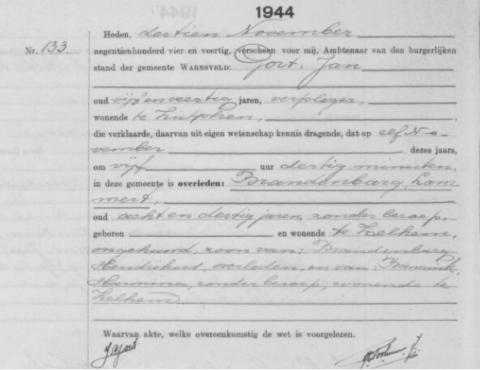 1944
Heden, dertien November
Nr. 133. negentienhonderd vier en veertig, verscheen voor mij, Ambtenaar van den burgerlijken
stand der gemeente WARNSVELD: Gort, Jan
oud vijf en veertig jaren, verpleger,
wonende te Zutphen,
die verklaarde, daarvan uit eigen wetenschap kennis dragende, dat op elf No-
vember dezes jaars,
om vijf uur dertig minuten,
in deze gemeente is overleden: Brandenbarg, Lam-
mert,
oud acht en dertig jaren, zonder beroep,
geboren en wonende te Zelhem,
ongehuwd, zoon van: Brandenbarg,
Hendrikus, overleden, en van
Hermina, zonder beroep, wonende te
Zelhem.
Waarvan akte, welke overeenkomstig de wet is voorgelezen.
JGort